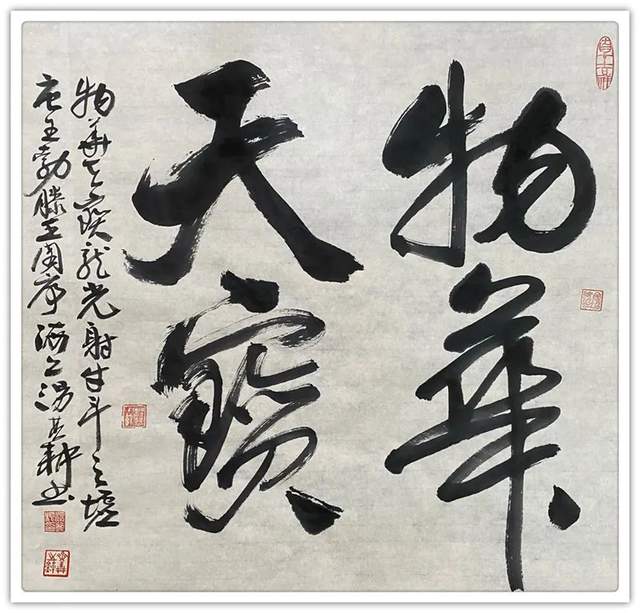 物華
天寶
物華天寶龙光射牛斗之墟
唐王勃滕王閣序 上湯其耕书